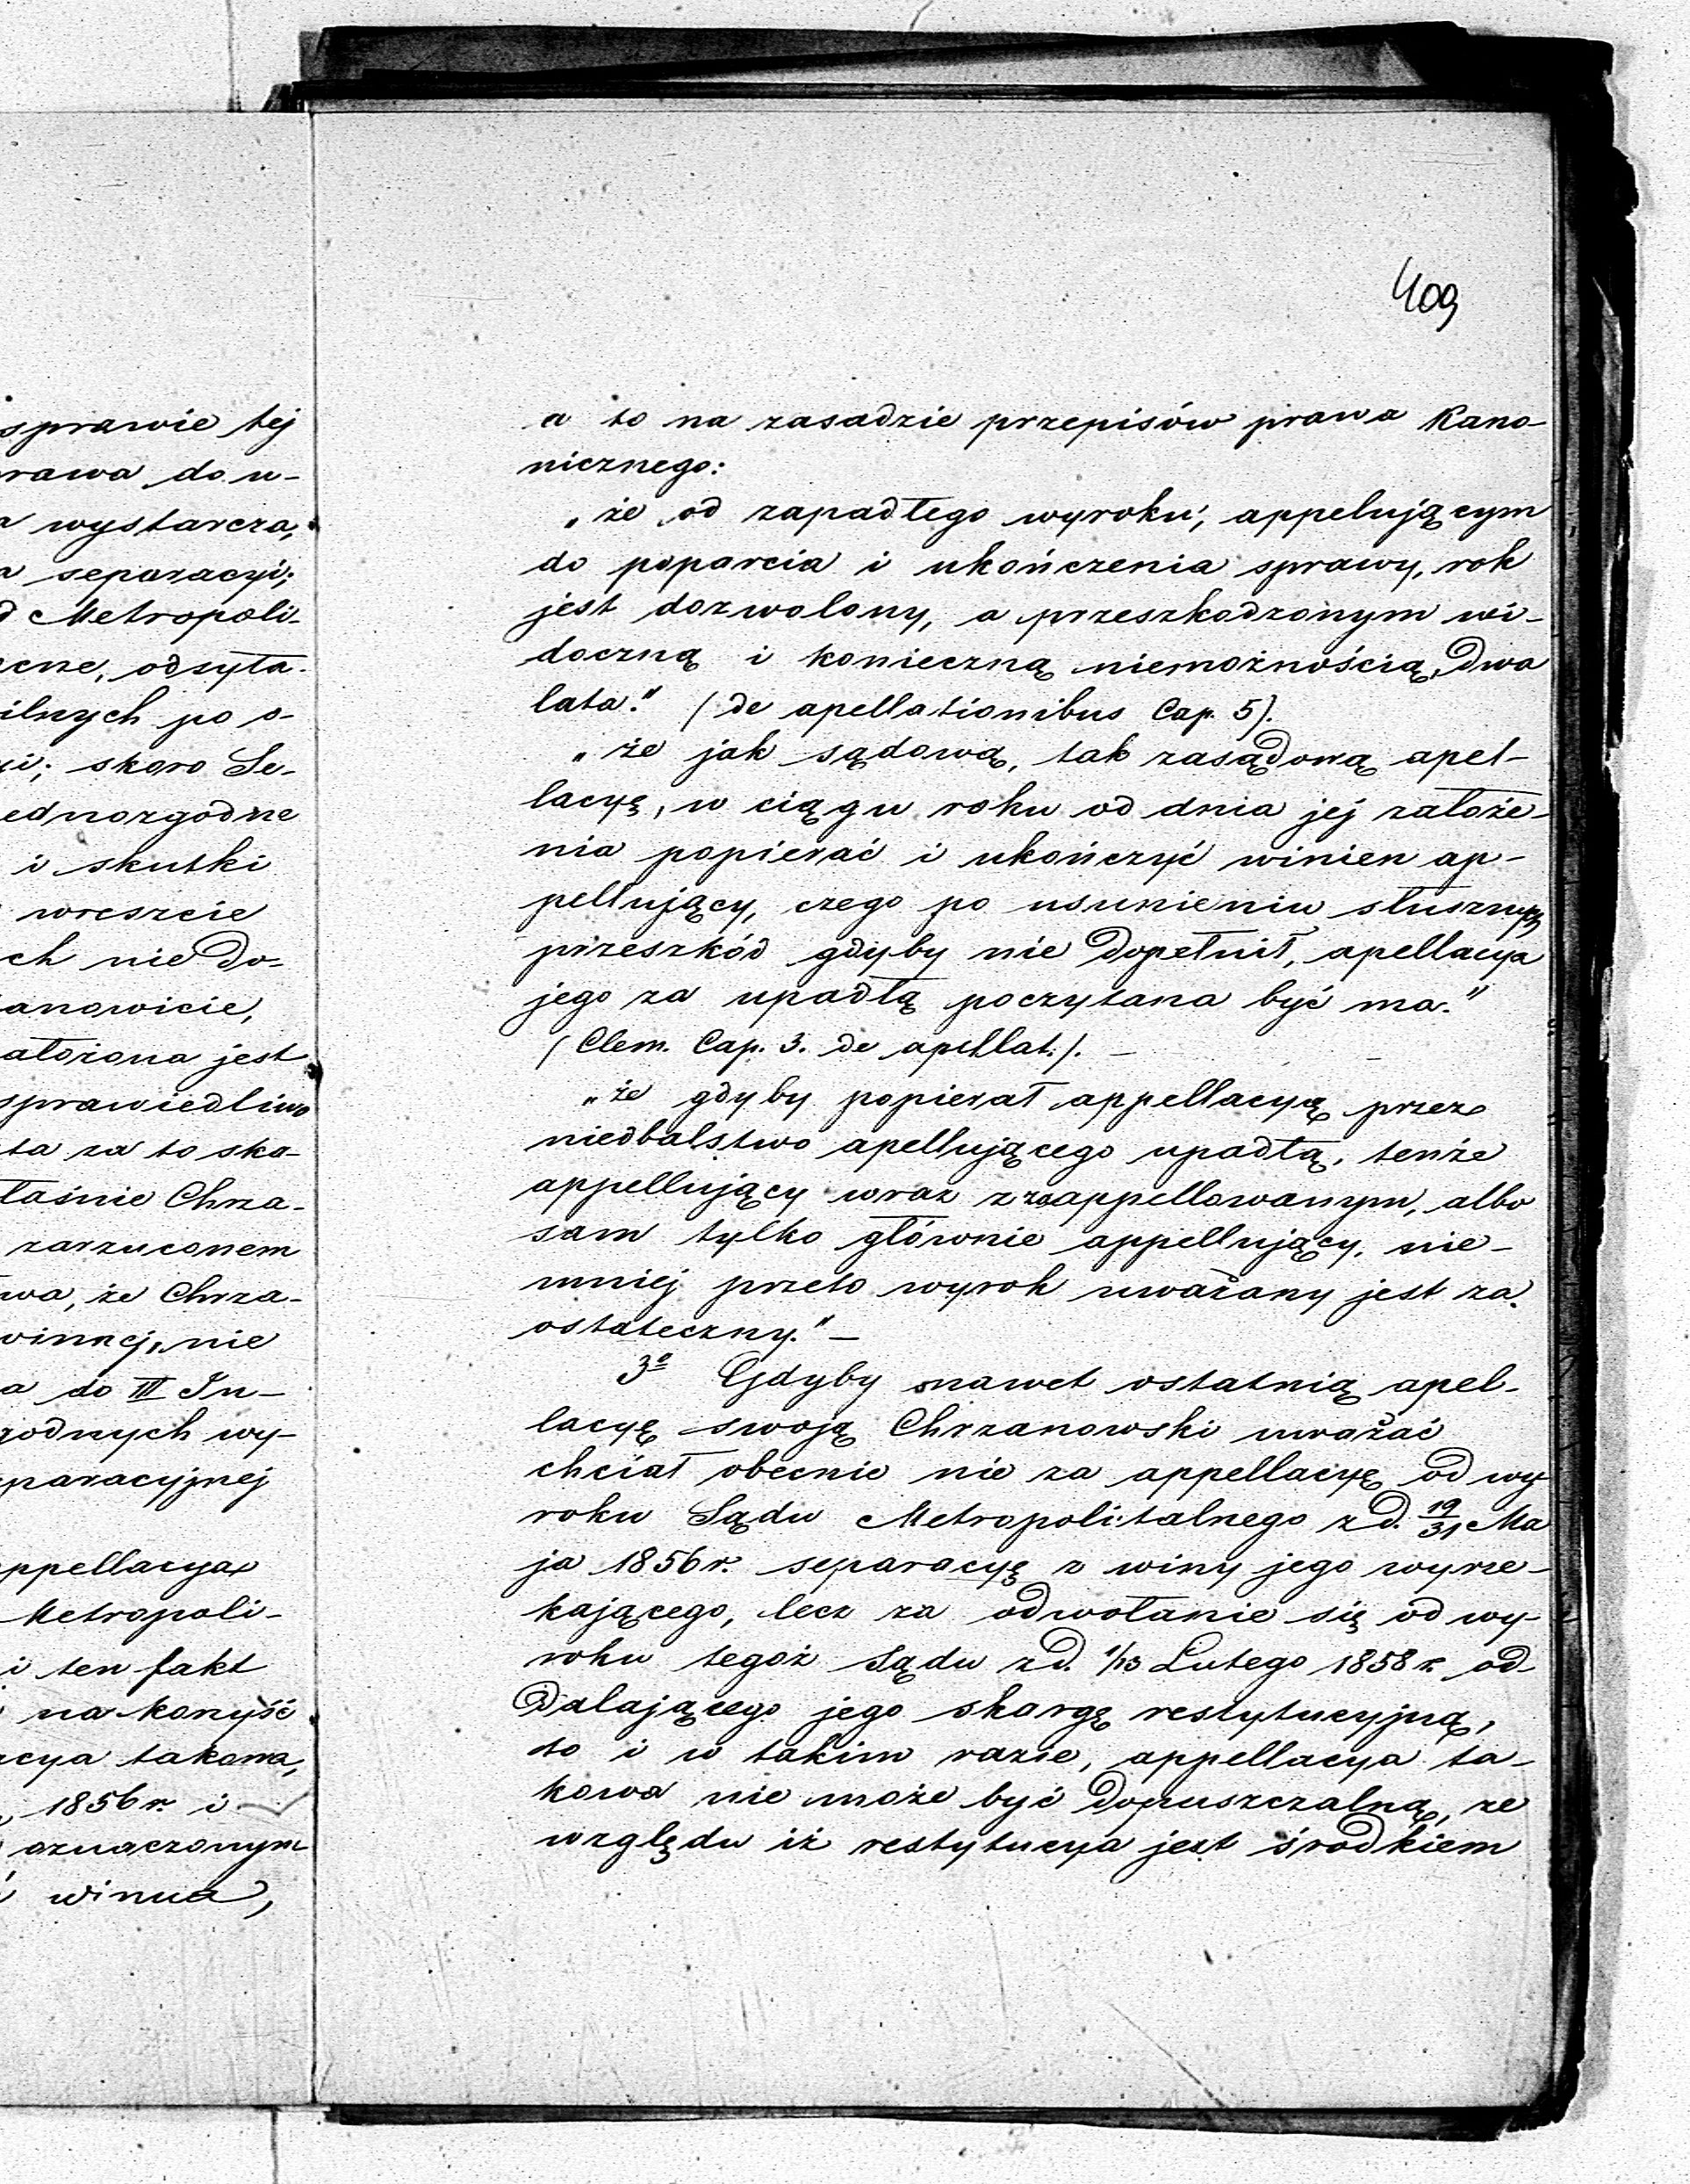 409
a to na zasadzie przepisów prawa Kano-
nicznego:
„że od zapadłego wyroku, appelującym
do poparcia i ukończenia sprawy, rok
jest dozwolony, a przeszkodzonym wi-
doczną i konieczną niemożnością, dwa
lata." (de apellationibus Cap. 5).
„że jak sądową, tak zasądową apel-
lacyę, w ciągu roku od dnia jej założe-
nia popierać i ukończyć winien ap-
pellujący, czego po usunieniu słusznych
przeszkód gdyby nie dopełnił, apellacya
jego za upadłą poczytana być ma."
(Clem. Cap. 3. de apellat.). —
„że gdyby popierał appellacyą przez
niedbalstwo apellującego upadłą, tenże
appellujący wraz z zaappellowanym, albo
sam tylko głównie appellujący, nie-
mniej przeto wyrok uważany jest za
ostateczny." —
3º Gdyby nawet ostatnią apel-
lacyę swoją Chrzanowski uważać
chciał obecnie nie za appellacyę od wy
roku Sądu Metropolitalnego z d. 19/31 Ma
ja 1856 r. separacyę z winy jego wyrze-
kającego, lecz za odwołanie się od wy-
roku tegoż Sądu z d. 1/13 Lutego 1858 r. od-
dalającego jego skargę restytucyjną,
to i w takim razie, appellacya ta-
kowa nie może być dopuszczalną, ze
względu iż restytucya jest środkiem
sprawie tej
rawa do u-
wystarcza,
separacyi;
Metropoli-
odsyła-
ilnych po o-
skoro Se-
ednozgodne
i skutki
wreszcie
ch nie do-
anowicie,
ałożona jest
sprawiedliwo
ta za to ska-
łaśnie Chrza-
zarzuconem
wa, że Chrza-
winnej, nie
a do III In-
godnych wy-
paracyjnej
ppellacya
Metropoli-
i ten fakt
na korzyść
acya takowa,
1856 r. i
oznaczonym
winna,